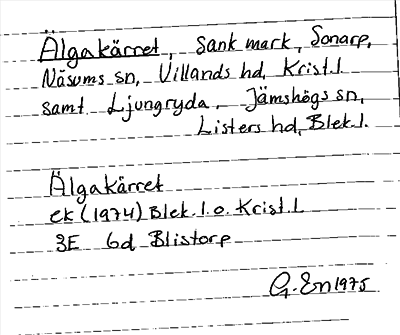 Älgakärret, Sank mark, Sonarp,
Näsums sn, Villands hd, Krist.l.
samt Ljungryda, Jämshögs sn,
Listers hd, Blek.l.
Älgakärret
ek (1974) Blek.l.o. Krist.l
3E 6d Blistorp
G. En 1975